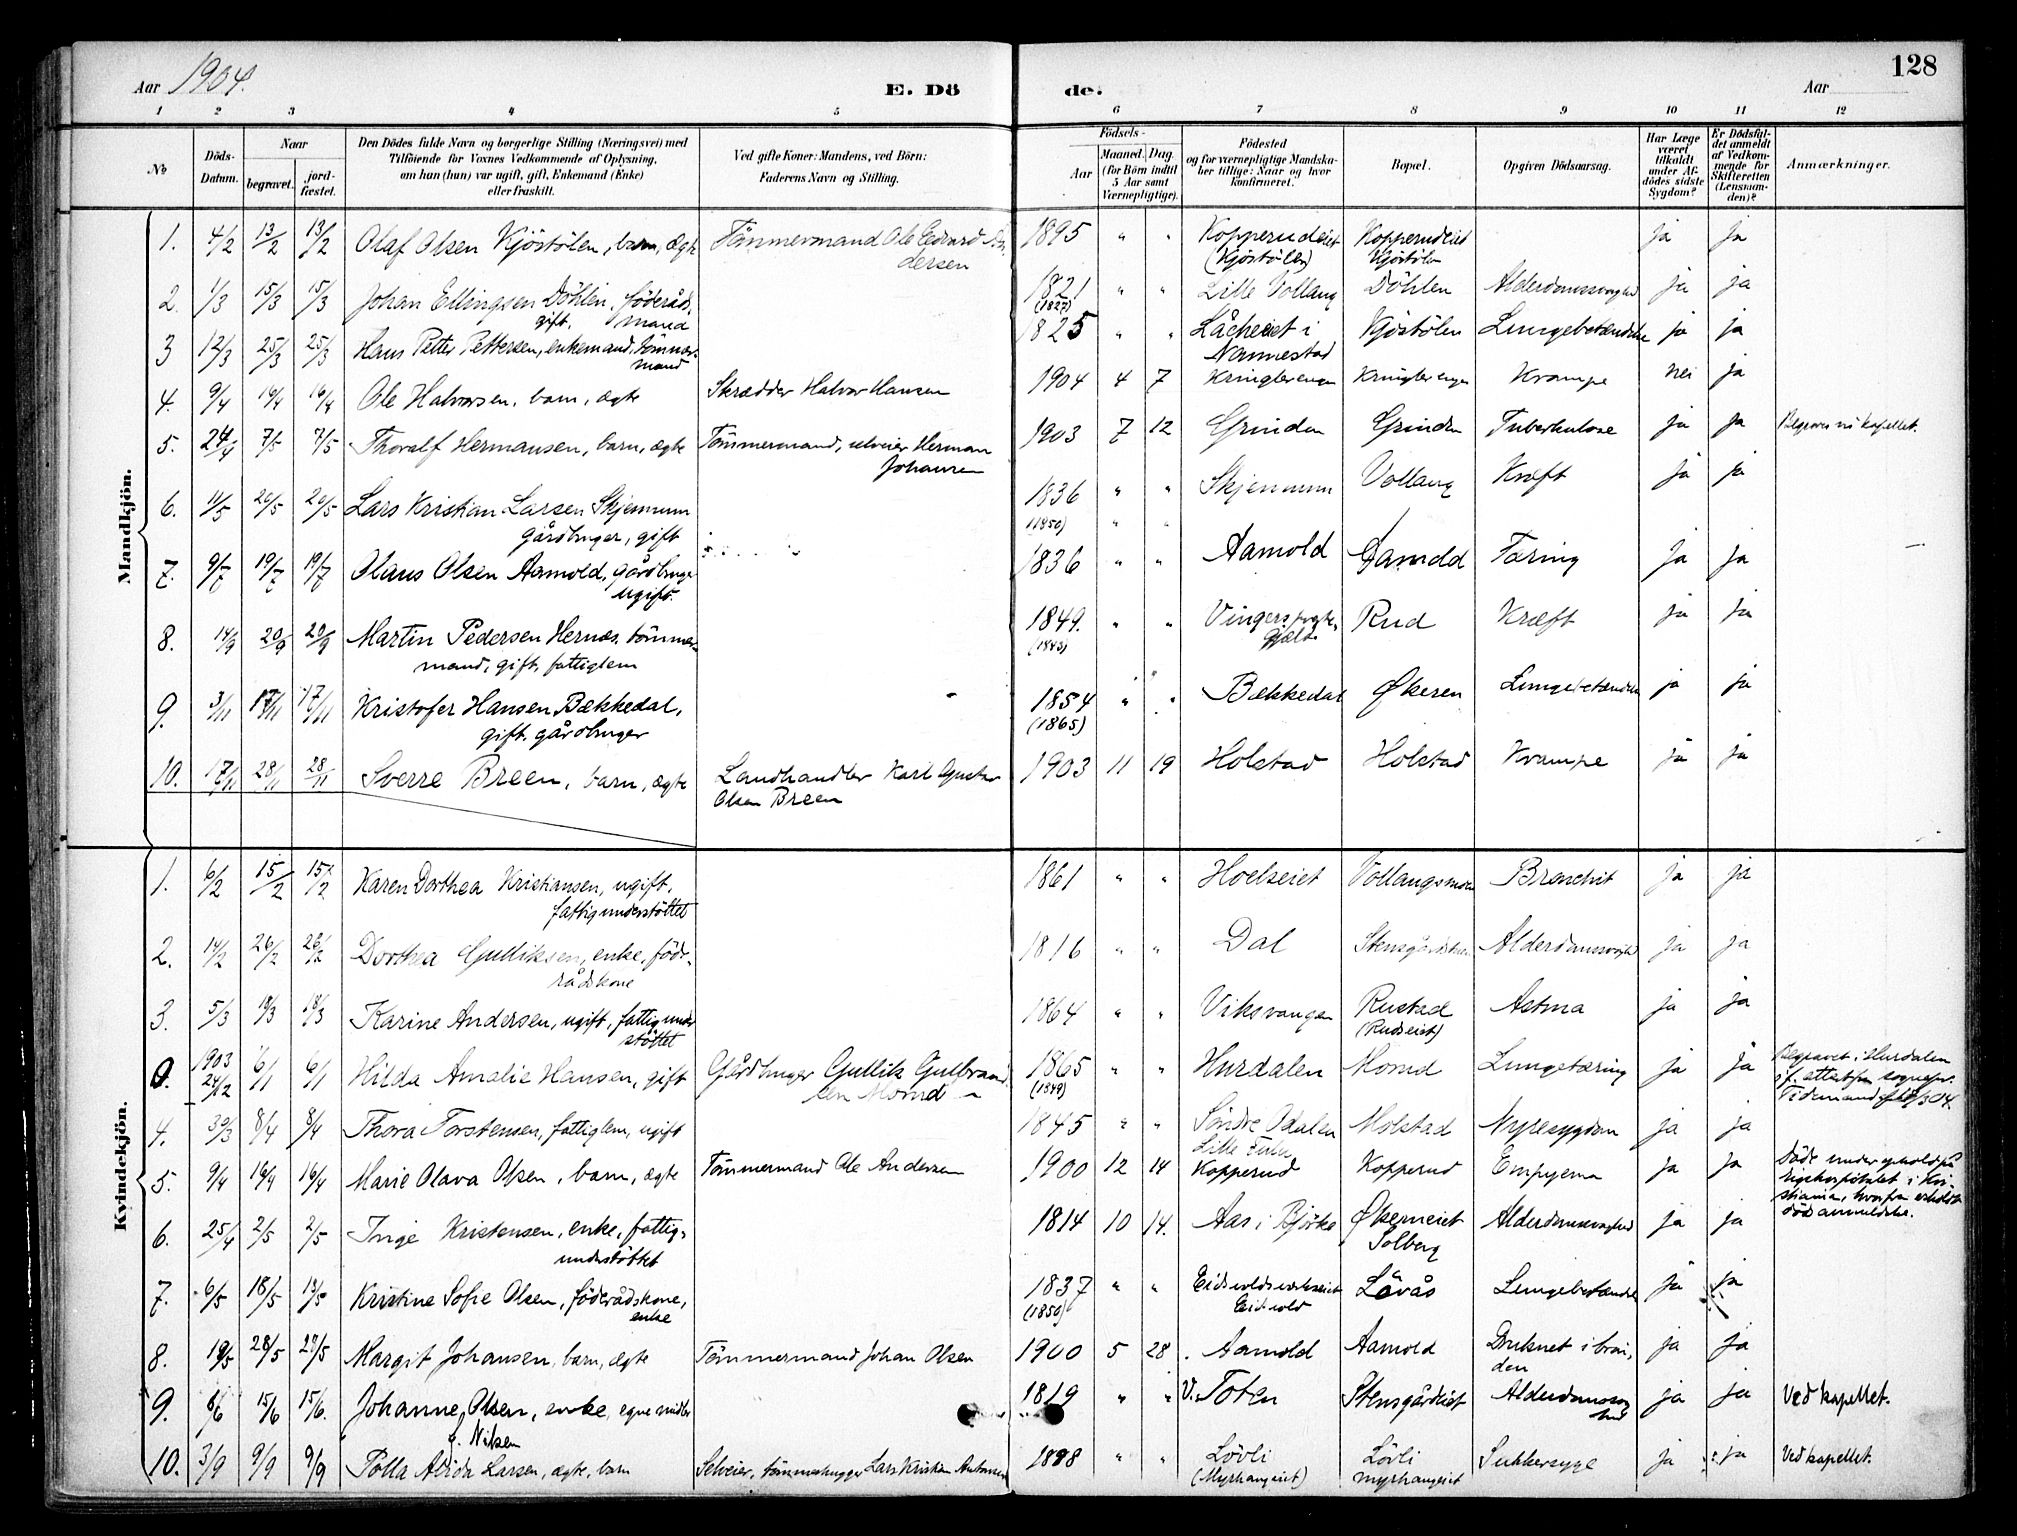 128
Aar 1904.
E. Dö
de.
Aar
1 2 3 4 5 6 7 8 9 10 11 12
No
Döds-Datum.
Naar
begravet.
jord-fæstet.
Den Dödes fulde Navn og borgerlige Stilling (Næringsvei) med
Tilföiende for Voxnes Vedkommende af Oplysning,
om han (hun) var ugift, gift, Enkemand (Enke)
eller fraskilt.
Ved gifte Koner: Mandens, ved Börn:
Faderens Navn og Stilling.
Födsels-
Aar
Maaned. Dag.
(for Börn indtil
5 Aar samt
Værnepligtige).
Födested
og for værnepligtige Mandska-
ber tillige: Naar og hvor
konfirmeret.
Bopæl.
Opgiven Dödsaarsag.
Har Læge
været
tilkaldt
under Af-
dödes sidste
Sygdom?
Er Dödsfal-
det anmeldt
af Vedkom-
mende for
Skifteretten
(Lensman-
den)?
Anmærkninger.
Mandkjön.
1. 4/2 13/2 13/2 Olaf Olsen Kjöstölen, barn, ægte Tömmermand Ole Edvard An- 1895 " " Kopperudeiet Kopperudeiet ja ja
dersen (Kjöstölen) Kjöstölen
2. 1/3 15/3 15/3 Johan Ellingsen Döhlen, föderåd, 1821 " " Lille Vollaug Döhlen Alderdomssvaghed ja ja
gift. mand (1827)
3 12/3 25/3 25/3 Hans Petter Pettersen, enkemand, tömmer- 1825 " " i Kjöstölen Lungebetændelse ja ja
mand Nannestad
4. 9/4 16/4 16/4 Ole Halvorsen, barn, ægte Skrædder Halvor Hansen 1904 4 7 Kringlerengen Kringlerengen Krampe nei ja
5. 24/4 7/5 7/5 Thoralf Hermansen, barn, ægte Tömmermand, selveier Herman 1903 7 12 Grinden Grinden Tuberkulose ja ja Begraves v. kapellet.
Johansen
6. 11/5 20/5 20/5 Lars Kristian Larsen Skjennum 1836 " " Skjennum Vollaug Kræft ja ja
gårdbruger, gift (1850) " "
7. 9/7 19/7 19/7 Olaus Olsen Aamold, gårdbruger 1836 " " Aamold Aamold Tæring ja ja
ugift.
8. 14/9 20/9 20/9 Martin Pedersen Hernæs, tömmer- 1849. " " Vingers præste- Rud Kræft ja ja
mand, gift, fattiglem (1843) gjeld
9. 3/11 17/11 17/11 Kristofer Hansen Bækkedal, 1854 " " Bækkedal Økeren Lungebetændelse ja ja
gift, gårdbruger (1865)
10. 17/11 28/11 28/11 Sverre Breen, barn, ægte Landhandler Karl Gustav 1903 11 19 Holstad Holstad Krampe ja ja
Olsen Breen
Kvindekjön.
1. 6/2 15/2 15/2 Karen Dorthea Kristiansen, ugift, 1861 " " Hoelseiet Vollaugsmoen Bronchit ja ja
fattigunderstöttet
2. 14/2 26/2 26/2 Dorthea Gulliksen, enke, föde- 1816 " " Dal Alderdomssvaghed ja ja
rådskone
3. 5/3 18/3 18/3 Karine Andersen, ugift, fattigunder 1864 " " Viksvangen Rustad Astma ja ja
stöttet (Rudseiet)
0. 1903 24/12 6/1 6/1 Hilda Amalie Hansen, gift Gårdbruger Gullik Gulbrand- 1865 " " Hurdalen Morud Lungetæring ja ja Begravet i Hurdalen
sen Morud (1849) attest fra sognepr.
4. 30/3 8/4 8/4 Thora Torstensen, fattiglem, ugift 1845 " " Söndre Odalen Holstad Nyresygdom ja ja
5. 9/4 16/4 16/4 Marie Olava Olsen, barn, ægte Tömmermand Ole Andersen 1900 12 14 Kopperud Kopperud Empyema ja ja Döde under ophold på
rigshospitalet i Kri-
stiania, hvorfra
dödsanmeldelse.
6. 25/4 2/5 2/5 Inge Kristensen, enke, fattig- 1814 10 14. Aas i Bjerke Økerneiet Alderdomssvaghed ja ja
understöttet Solberg
7. 6/5 18/5 18/5 Kristine Sofie Olsen, föderådskone, 1837 " " Eidsvoldsverkseiet Lövås Lungebetændelse ja ja
enke (1850) Eidsvold
8. 19/5 28/5 29/5 Margit Johansen, barn, ægte Tömmermand Johan Olsen 1900 5 28 Aamold Aamold Druknet i brön, ja ja
den
9. 8/6 15/6 15/6. Johanne Olsen, enke, egne midler 1819 " " V. Toten Stensgårdeiet ja ja Ved kapellet.
f. Nilsen
10. 3/9 9/9 9/9 Polla Alvida Larsen, ægte, barn Selveier, tömmerhugger Lars Kristian Antonsen 1898 " " Lövli Lövli Sukkersyge ja ja Ved kapellet.
(Myrhaugeiet) Myrhaugeiet